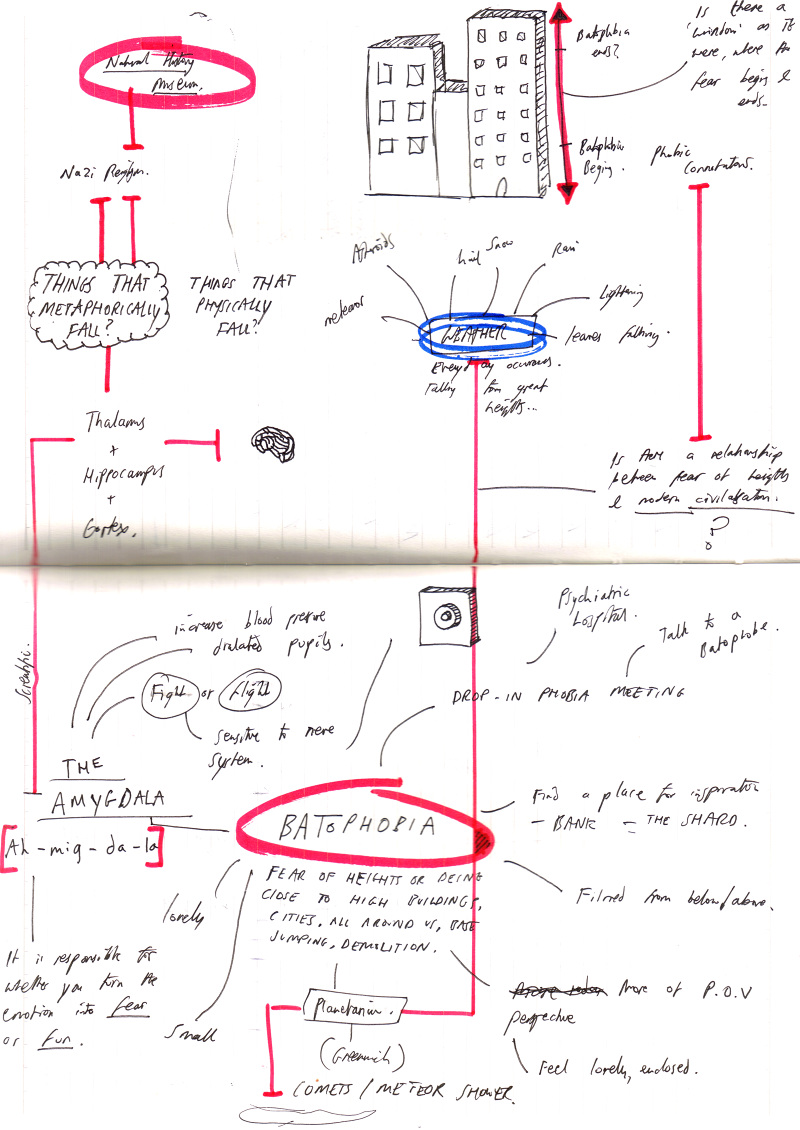 Natural History
Museum.
Nazi Regime.
THINGS THAT
METAPHORICALLY
FALL?
THINGS THAT
PHYSICALLY
FALL?
Thalamus
+
Hippocampus
+
Cortex.
Batophobia
ends?
Batophobia
Begins.
Is there a
'window' as it
were, where the
fear begins &
ends.
Phobic
Connotations.
Asteroids
hail
Snow
Rain
Lightening
meteor
WEATHER
leaves falling.
Everyday occurances.
Falling from great
heights...
Is there a relationship
between fear of heights
& modern civilisation.
?
Scientific.
increase blood presure
dialated pupils.
Fight or flight
Sensitive to nerve
System.
THE
AMYGDALA
[Ah-mig-da-la]
It is responsible for
whether you turn the
emotion into fear
or fun.
Psychiatric
Hospital.
Talk to a
Batophobe.
DROP-IN PHOBIA MEETING
BATOPHOBIA
FEAR OF HEIGHTS OR BEING
CLOSE TO HIGH BUILDINGS,
CITIES, ALL AROUND US, BASE
JUMPING, DEMOLITION.
Find a place for inspiration
- BANK - THE SHARD.
Filmed from below/above.
lonely
Small
More of P.O.V
perspective
Feel lonely, enclosed.
Planetarium.
(Greenwich)
COMETS / METEOR SHOWER.